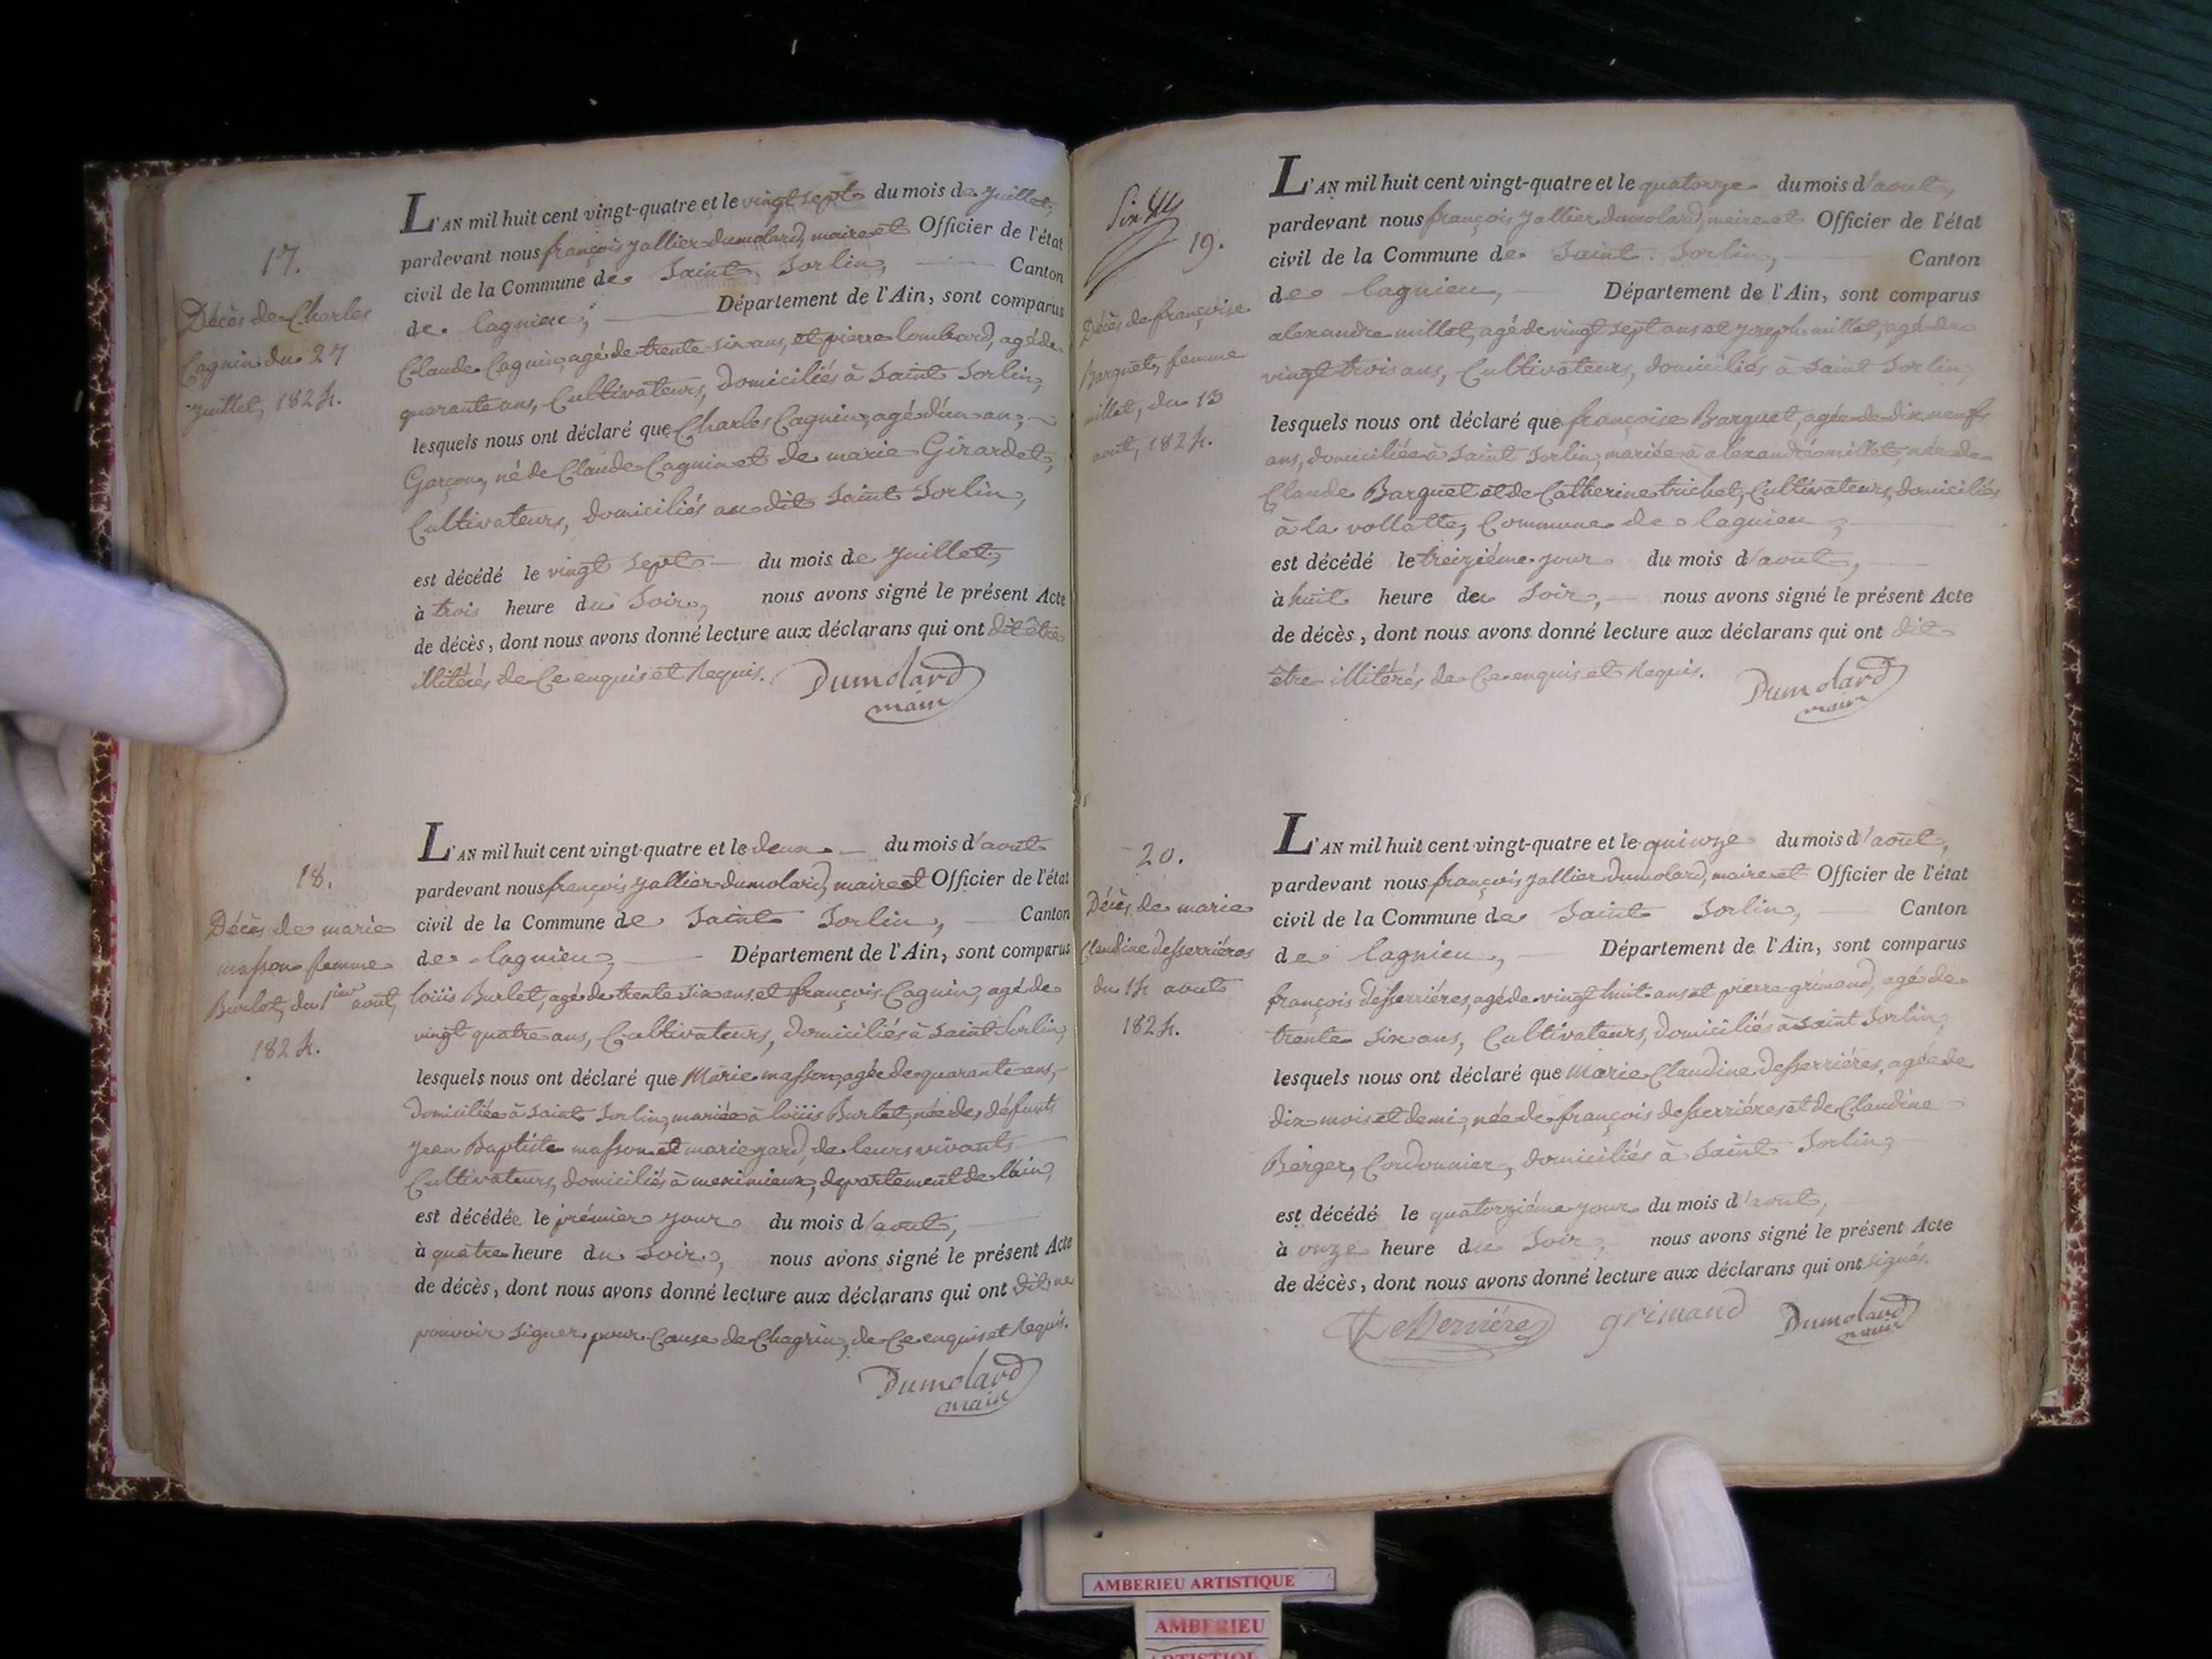 17.
Décès de Charles
Cagnin du 27
juillet, 1824.
L'AN mil huit cent vingt-quatre et le vingt sept du mois de juillet,
pardevant nous françois jallier dumolard, maire et Officier de l'état
civil de la Commune de Saint Sorlin, Canton
de lagnieu, Département de l'Ain, sont comparus
Claude Cagnin, agé de trente six ans, et pierre lombard, agé de
quarante ans, Cultivateurs, domiciliés à Saint Sorlin,
lesquels nous ont déclaré que Charles Cagnin, agé d'un an,
Garçon, né de Claude Cagnin et de marie Girardet,
Cultivateurs, domiciliés au dit Saint Sorlin,
est décédé le vingt sept du mois de juillet,
à trois heure du Soir, nous avons signé le présent Acte
de décès, dont nous avons donné lecture aux déclarans qui ont dit être
illitérés de Ce enquis et Requis. Dumolard
maire
18.
Décès de marie
masson femme
Burlet, du 1ier aout,
1824.
L'AN mil huit cent vingt-quatre et le deux du mois d'aout
pardevant nous françois jallier dumolard, maire et Officier de l'état
civil de la Commune de Saint Sorlin, Canton
de lagnieu, Département de l'Ain, sont comparus
loüis Burlet, agé de trente six ans, et françois Cagnin, agé de
vingt quatre ans, Cultivateurs, domiciliés à Saint Sorlin,
lesquels nous ont déclaré que Marie masson, agée de quarante ans,
domiciliée à Saint Sorlin, mariée à loüis Burlet, née des défunts
jean Baptiste masson et marie jard, de leurs vivants
Cultivateurs, domiciliés à meximieux, departement de l'ain,
est décédée le prémier jour du mois d'aout,
à quatre heure du Soir, nous avons signé le présent Acte
de décès, dont nous avons donné lecture aux déclarans qui ont dit ne
pouvoir signer pour Cause de Chagrin, de Ce enquis et Requis.
Dumolard
maire
Six
19.
Décès de françoise
Barquet, femme
millet, du 13
aout, 1824.
L'AN mil huit cent vingt-quatre et le quatorze du mois d'aout,
pardevant nous françois jallier dumolard, maire et Officier de l'état
civil de la Commune de Saint Sorlin, Canton
de lagnieu, Département de l'Ain, sont comparus
alexandre millet, agé de vingt sept ans et joseph millet, agé de
vingt trois ans, Cultivateurs, domiciliés à Saint Sorlin,
lesquels nous ont déclaré que françoise Barquet, agée de dix neuf
ans, domiciliée à Saint Sorlin, mariée à alexandre millet, née de
Claude Barquet et de Catherine trichet, Cultivateurs, domiciliés
à la vollatte, Commune de lagnieu,
est décédé le treiziéme jour du mois d'aout,
à huit heure du Soir, nous avons signé le présent Acte
de décès, dont nous avons donné lecture aux déclarans qui ont dit
être illitérés de Ce enquis et Requis. Dumolard
maire
20.
Décès de marie
Claudine desserriéres
du 14 aout
1824.
L'AN mil huit cent vingt-quatre et le quinze du mois d'aout,
pardevant nous françois jallier dumolard, maire et Officier de l'état
civil de la Commune de Saint Sorlin, Canton
de lagnieu, Département de l'Ain, sont comparus
françois desserriéres, agé de vingt huit ans et pierre grimand, agé de
trente six ans, Cultivateurs, domiciliés à Saint Sorlin,
lesquels nous ont déclaré que marie Claudine desserriéres, agée de
dix mois et demi, née de françois desserriéres et de Claudine
Berger, Cordonnier, domiciliés à Saint Sorlin,
est décédé le quatorziéme jour du mois d'aout,
à onze heure du Soir, nous avons signé le présent Acte
de décès, dont nous avons donné lecture aux déclarans qui ont signés.
Desserriéres grimand Dumolard
maire
AMBERIEU ARTISTIQUE
AMBERIEU
ARTISTIQUE